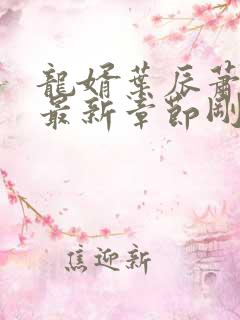 龍婿葉辰蕭
最新章節剛
焦迎新